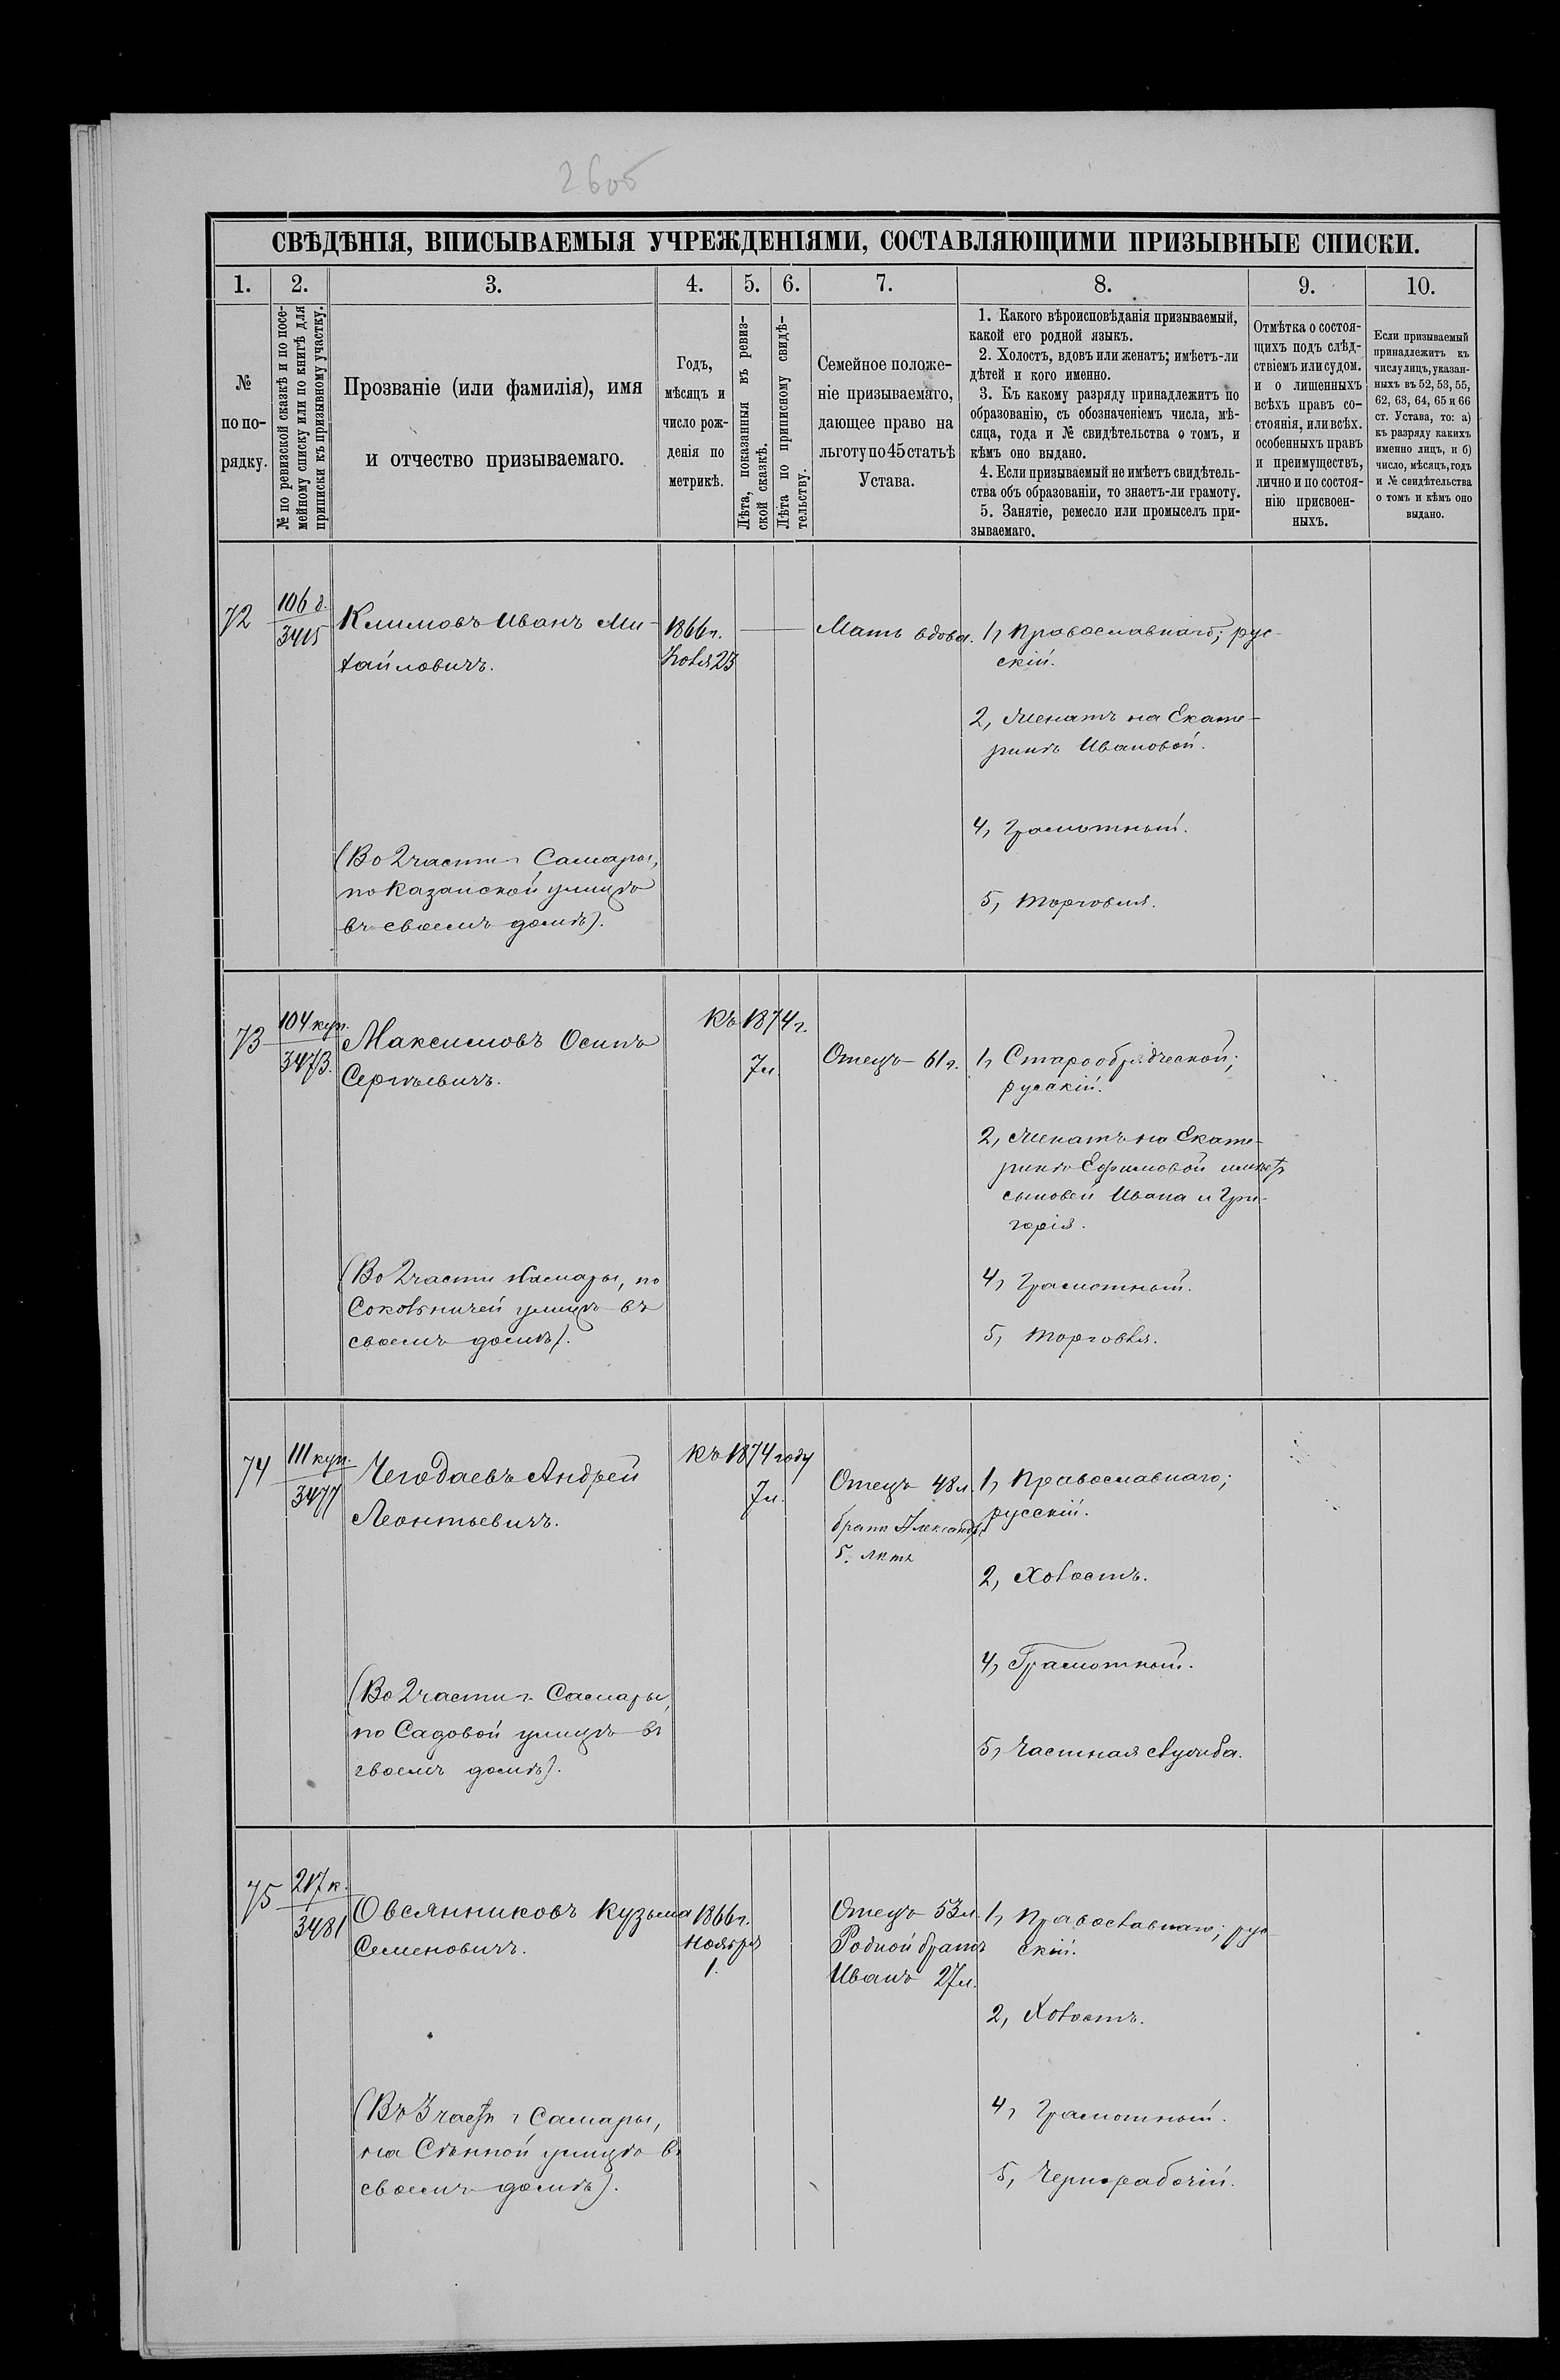 260б
СВѢДѢНІЯ, ВПИСЫВАЕМЫЯ УЧРЕЖДЕНІЯМИ, СОСТАВЛЯЮЩИМИ ПРИЗЫВНЫЕ СПИСКИ.
1. 2. 3. 4. 5. 6. 7. 8. 9. 10.
№
по по-
рядку.
№ по ревизской сказкѣ и по посе-
мейному списку или по книгѣ для
приписки къ призывному участку.
Прозваніе (или фамилія), имя
и отчество призываемаго.
Годъ,
мѣсяцъ и
число рож-
денія по
метрикѣ.
Лѣта, показанныя въ ревиз-
ской сказкѣ.
Лѣта по приписному свидѣ-
тельству.
Семейное положе-
ніе призываемаго,
дающее право на
льготу по 45 статьѣ
Устава.
1. Какого вѣроисповѣданія призываемый,
какой его родной языкъ.
2. Холостъ, вдовъ или женатъ; имѣетъ-ли
дѣтей и кого именно.
3. Къ какому разряду принадлежитъ по
образованію, съ обозначеніемъ числа, мѣ-
сяца, года и № свидѣтельства о томъ, и
кѣмъ оно выдано.
4. Если призываемый не имѣетъ свидѣтель-
ства объ образованіи, то знаетъ-ли грамоту.
5. Занятіе, ремесло или промыселъ при-
зываемаго.
Отмѣтка о состоя-
щихъ подъ слѣд-
ствіемъ или судомъ.
и о лишенныхъ
всѣхъ правъ со-
стоянія, или всѣх.
особенныхъ правъ
и преимуществъ,
лично и по состоя-
нію присвоен-
ныхъ.
Если призываемый
принадлежитъ къ
числу лицъ, указан-
ныхъ въ 52, 53, 55,
62, 63, 64, 65 и 66
ст. Устава, то: а)
къ разряду какихъ
именно лицъ, и б)
число, мѣсяцъ, годъ
и № свидѣтельства
о томъ и кѣмъ оно
выдано.
72
106 д.
3415
Климовъ Иванъ Ми-
хайловичъ.
(Во 2 части г. Самары,
по Казанской улицѣ
въ своемъ домѣ).
1866 г.
23
Мать вдова.
1, Православнаго; рус-
скій.
2, Женатъ на Екате-
ринѣ Ивановой.
4, Грамотный.
5, Торговля.
73
104 куп.
3473.
Максимовъ Осипъ
Сергѣевичъ.
(Во 2 части г. Самары, по
Соковничей улицѣ въ
своемъ домѣ).
Къ 1874 г.
7 л.
Отецъ 61 г.
1, Старообрядческой;
русскій.
2, Женатъ на Екате-
ринѣ Ефимовой имѣетъ
сыновей Ивана и Гри-
горія.
4, Грамотный.
5, Торговля.
74
111 куп.
3477
Чегодаевъ Андрей
Леонтьевичъ.
(Во 2 части г. Самары,
по Садовой улицѣ въ
своемъ домѣ).
Къ 1874 году
7 л.
Отецъ 48 л.
братъ Александръ
5. лѣтъ
1, Православнаго;
русскій.
2, Холостъ.
4, Грамотный.
5, Частная служба.
75
217 к.
3481
Овсянниковъ Кузьма
Семеновичъ.
(Въ 3 части г Самары,
на Сѣнной улицѣ въ
своемъ домѣ).
1866 г.
Ноября
1.
Отецъ 53 л.
Родной братъ
Иванъ 27 л.
1, Православнаго; рус-
скій.
2, Холостъ.
4, Грамотный.
5, Чернорабочій.